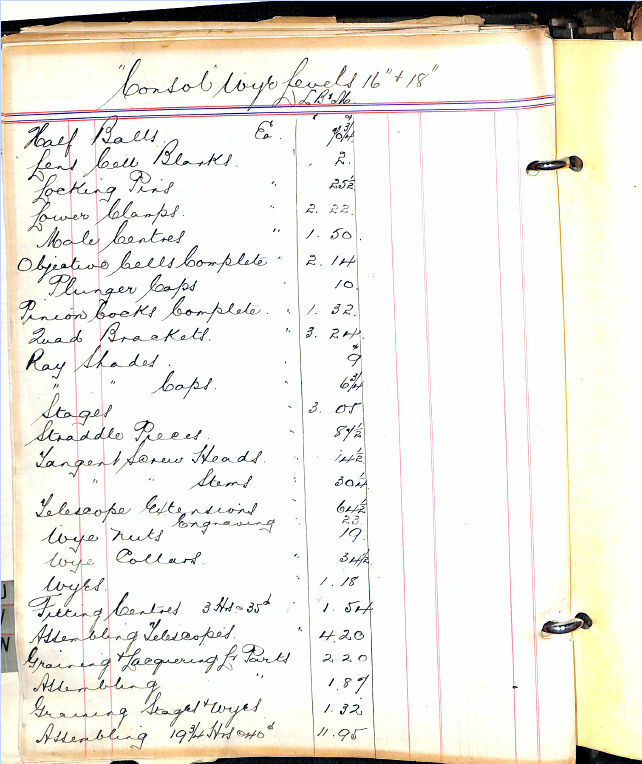 "Consol" Wye Levels 16" & 18"
Half Balls Ea. 10 3/4
Lens Cell Blanks. 2
Locking Pins " 25 1/2
Lower Clamps. " 2. 22.
Male Centres " 1. 50.
Objective Cells Complete " 2. 14
Plunger Caps " 10
Pinion Cocks Complete. " 1. 32.
Quad Brackets. " 3. 24.
Ray Shades. " 9
" " Caps. " 6 3/4
Stages " 3. 05
Straddle Pieces. " 87 1/2
Tangent Screw Heads. " 14 1/2
" " Stems " 30 1/4
Telescope Extensions " 64 1/2
Engraving 23
Wye nuts " 19.
Wye Collars. " 34 1/2
Wyes. " 1. 18
Fitting Centres 3 Hrs @ 35d " 1. 54
Assembling Telescopes. " 4.20
Graining & Lacquering Parts 2.20
Assembling " 1.87
Graining Stages & Wyes 1.32
Assembling 19 3/4 Hrs @ 40d 11.95